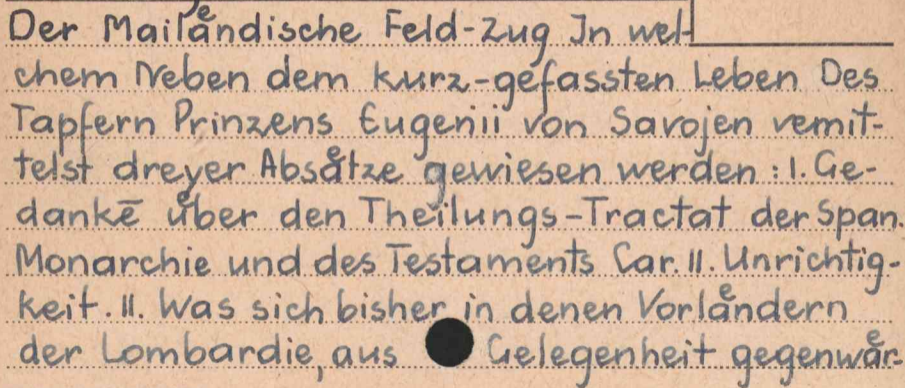 Der Mailaͤndische Feld-Zug In wel-
chem Neben dem kurz-gefassten Leben Des
Tapfern Prinzens Eugenii von Savojen vemit-
telst dreyer Absaͤtze gewiesen werden : I. Ge-
dankē uͤber den Theilungs-Tractat der Span.
Monarchie und des Testaments Car. II. Unrichtig-
keit. II. Was sich bisher in denen Vorlaͤndern
der Lombardie, aus Gelegenheit gegenwaͤr-